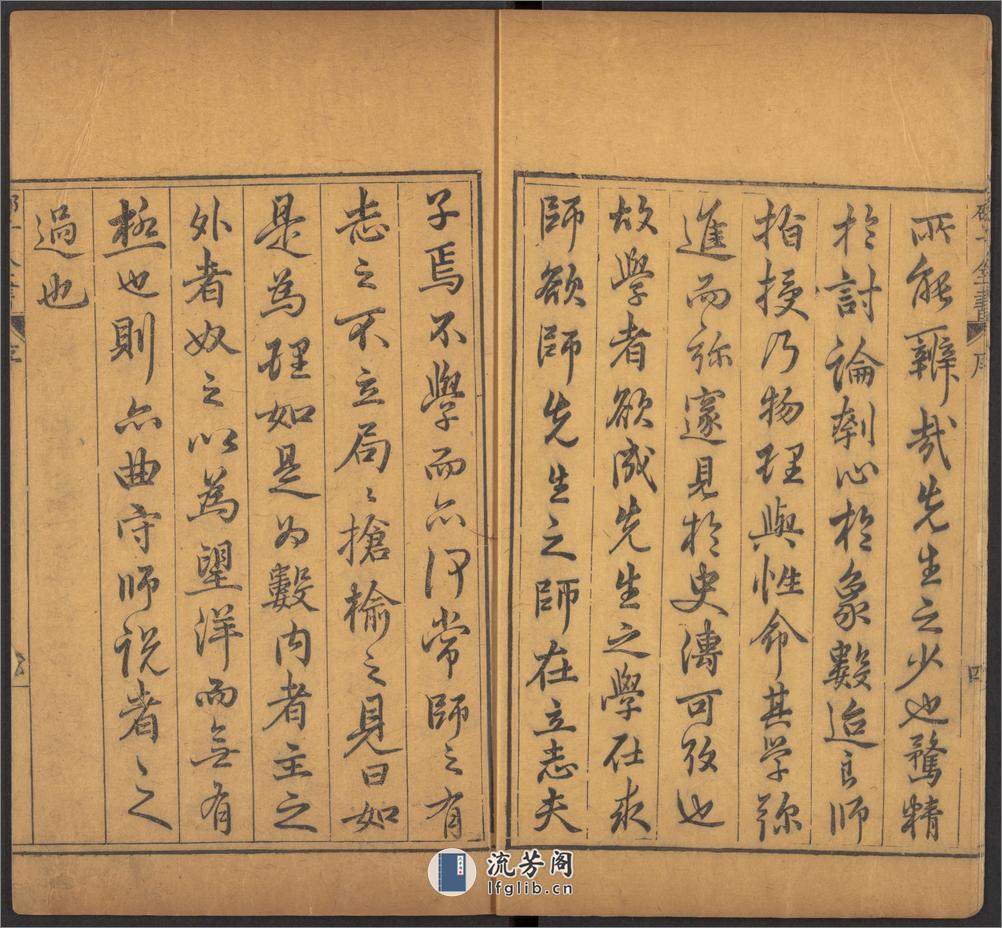 所能辦哉先生之少也騖精
於討論刳心於象數迨良師
指授乃物理與性命其学弥
進而弥邃見於史傳可攷也
故學者欲成先生之學在求
師欲師先生之師在立志夫
子焉不學而亦何常師之有
志之不立局〻搶榆之見曰如
是為理如是为數内者主之
外者奴之以為望洋而無有
極也則亦曲守师说者之
過也
序
四
流芳阁
lfglib.cn